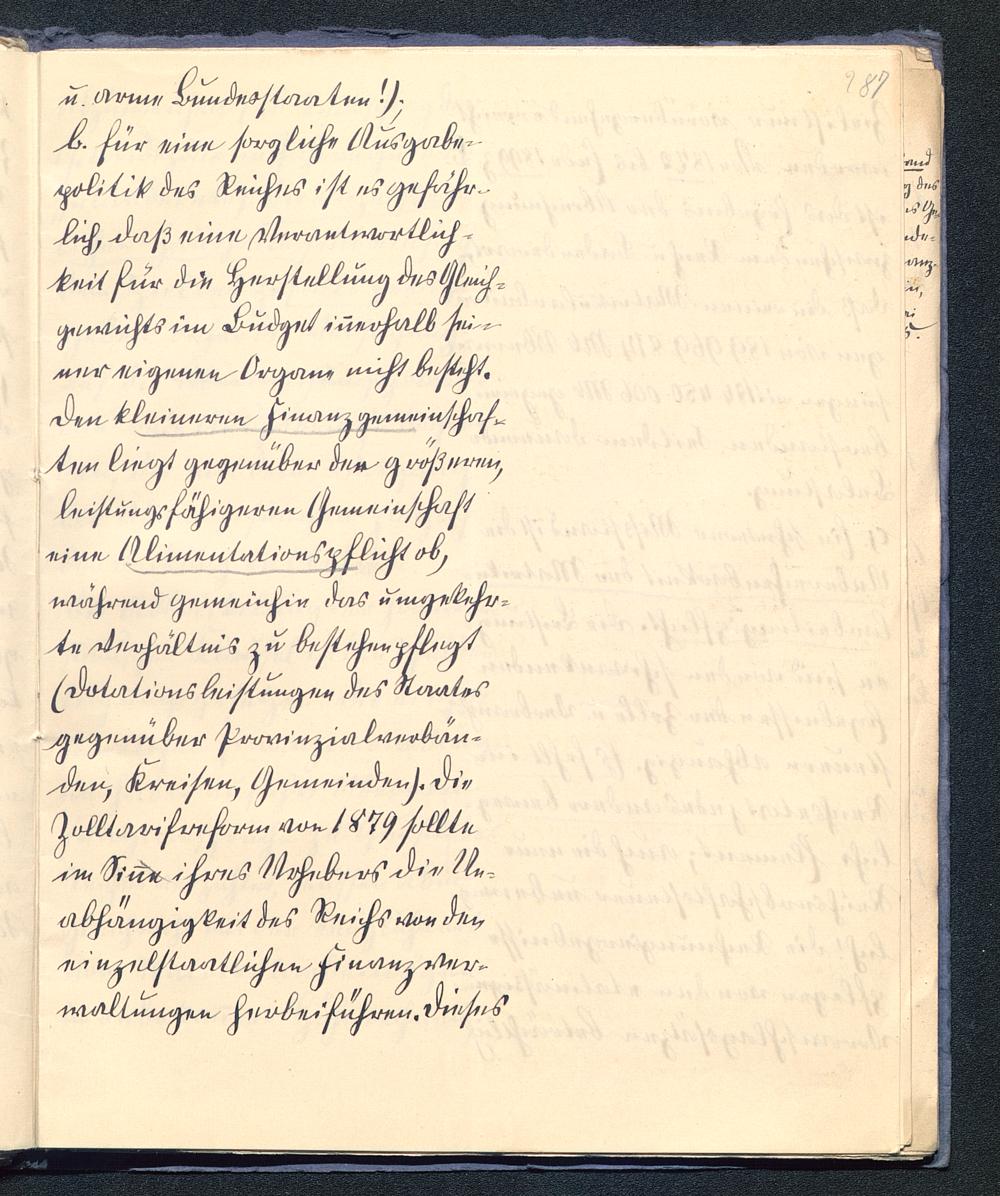 287
u. arme Bundesstaaten!);
b. für eine sorgliche Ausgabe-
politik des Reiches ist es gefähr-
lich, daß eine Verantwortlich-
keit für die Herstellung des Gleich-
gewichts im Budget innerhalb sei-
ner eigenen Organe nicht besteht.
Den kleineren Finanzgemeinschaf-
ten liegt gegenüber der größeren,
leistungsfähigeren Gemeinschaft
eine Alimentationspflicht ob,
während gemeinhin das umgekehr-
te Verhältnis zu bestehen pflegt
(Dotationsleistungen des Staates
gegenüber Provinzialverbän-
den, Kreisen, Gemeinden). Die
Zolltarifreform von 1879 sollte
im Sinne ihres Urhebers die Un-
abhängigkeit des Reichs von den
einzelstaatlichen Finanzver-
waltungen herbeiführen. Dieses